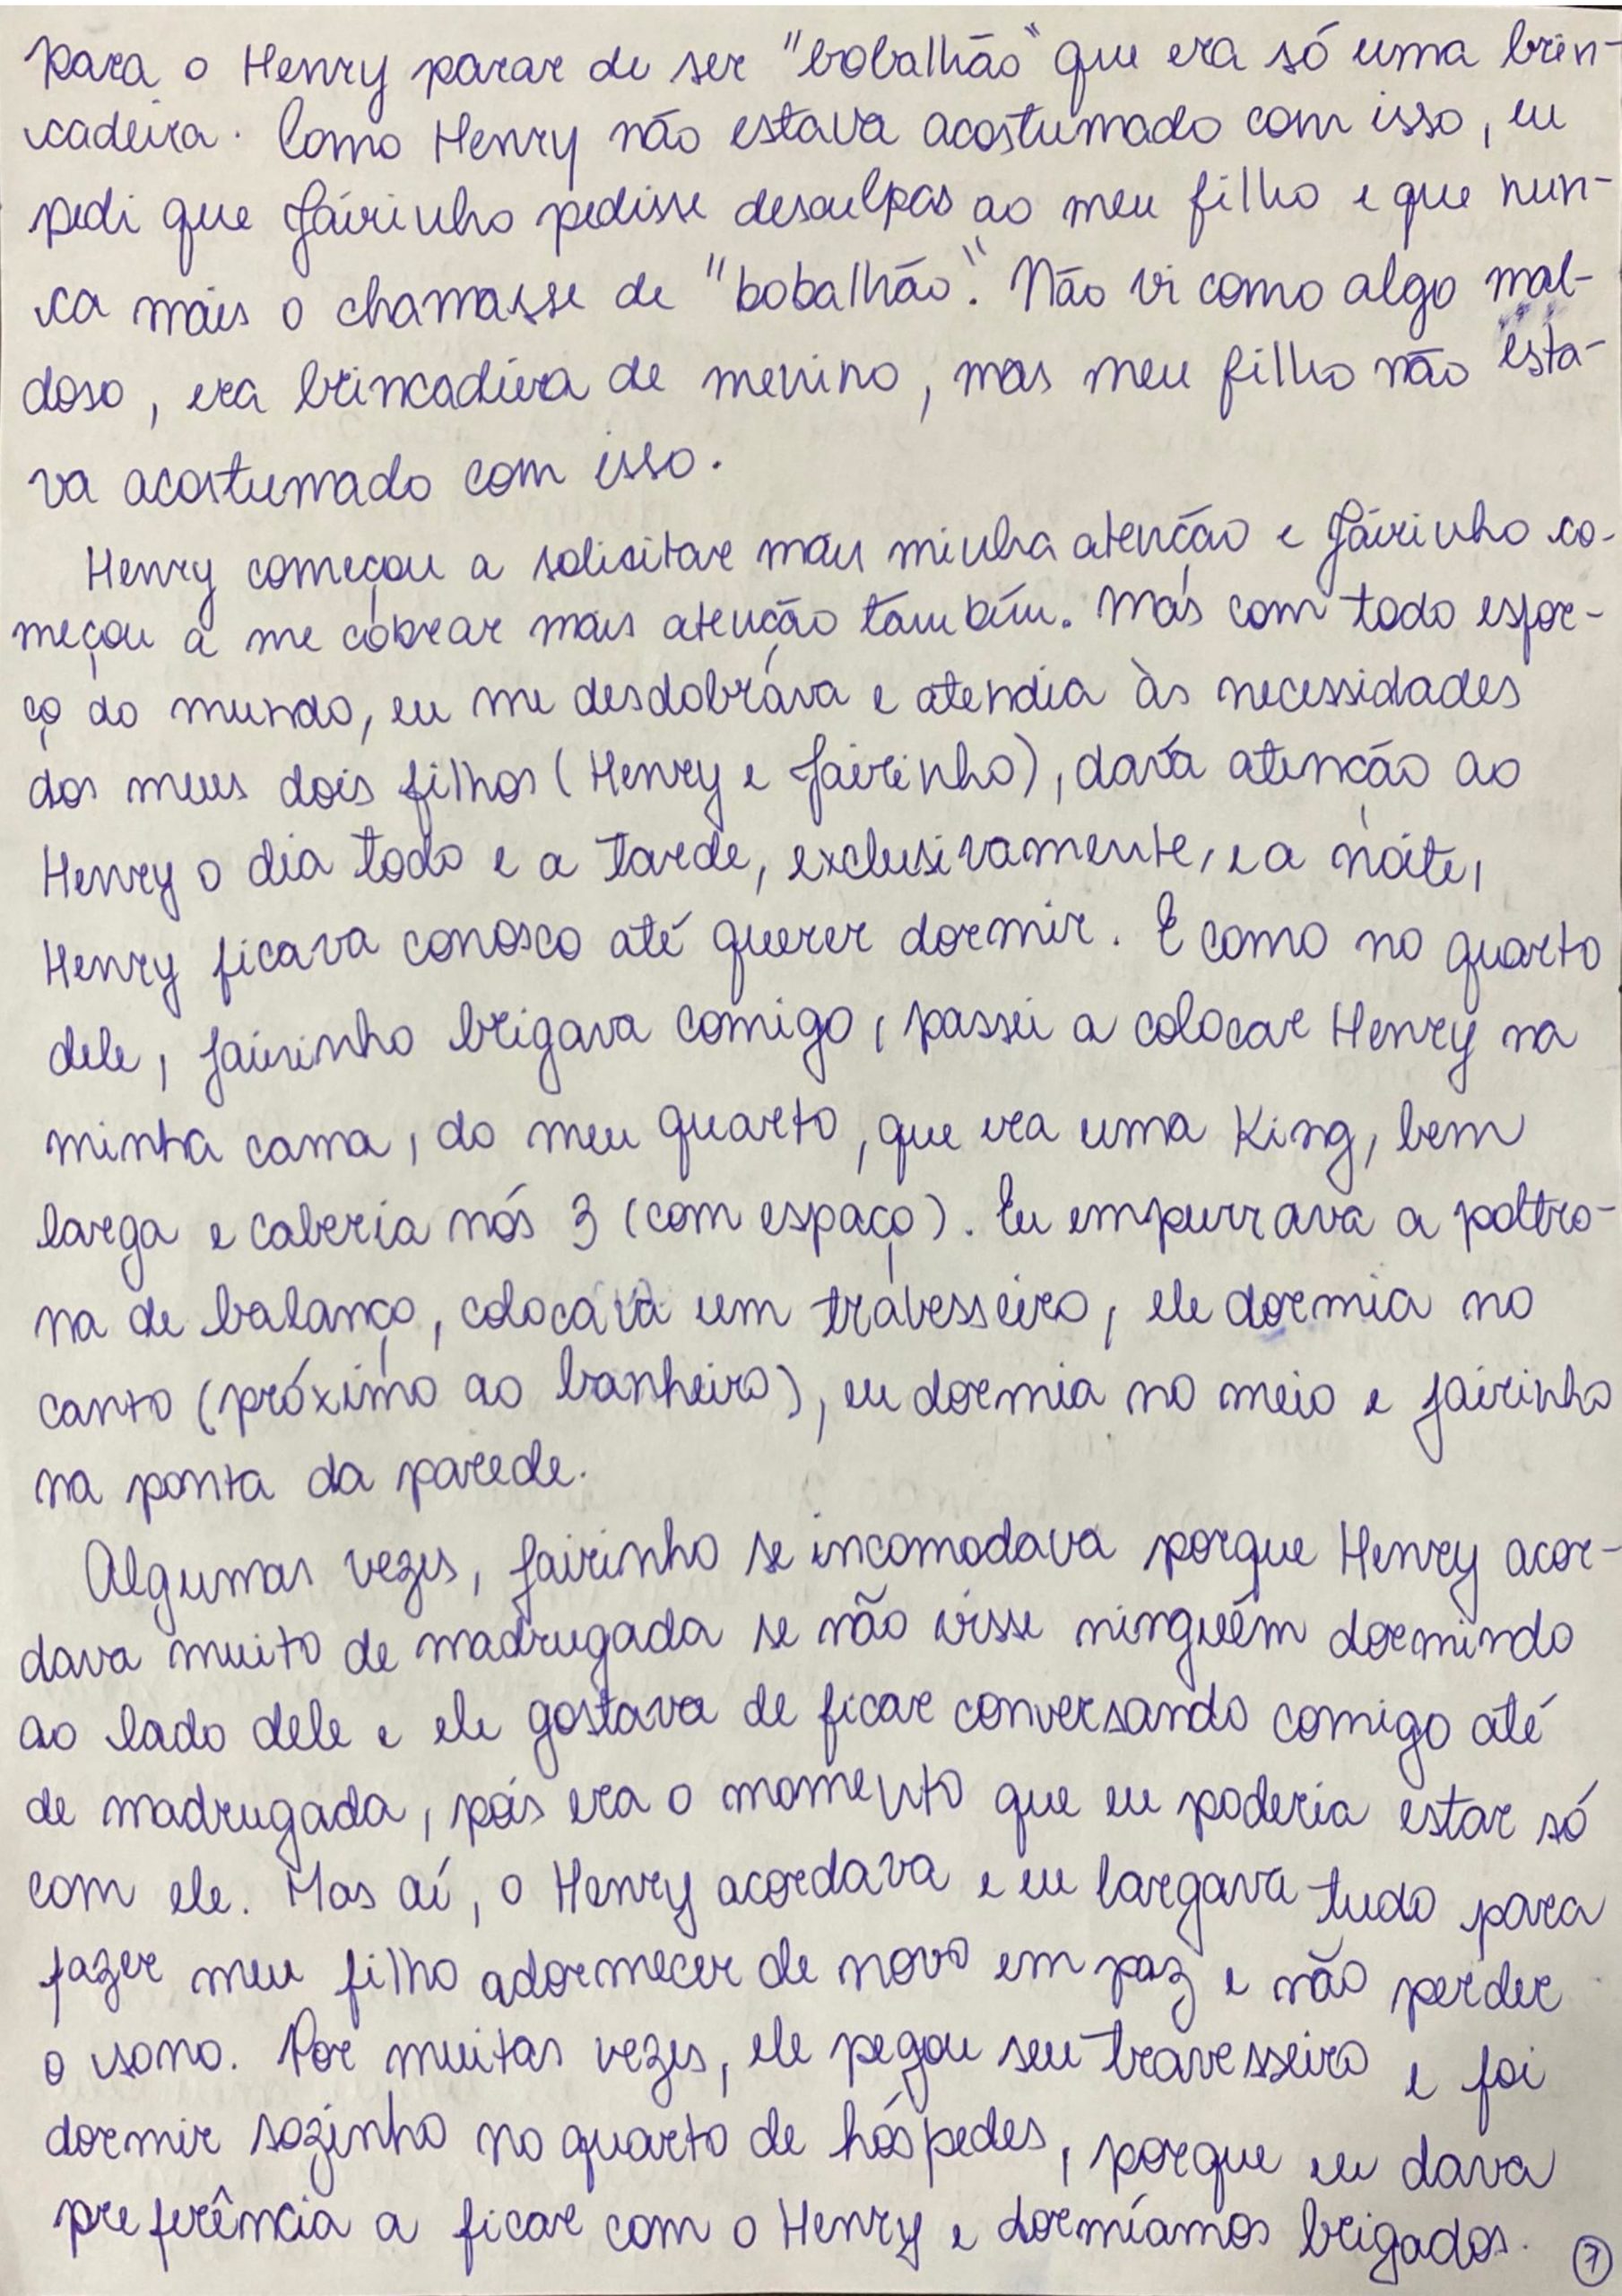 para o Henry parar de ser "bobalhão" que era só uma brin-
cadeira. Como Henry não estava acostumado com isso, eu
pedi que Jairinho pedisse desculpas ao meu filho e que nun-
ca mais o chamasse de "bobalhão". Não vi como algo mal-
doso, era brincadiera de menino, mas meu filho não esta-
va acostumado com isso.
Henry começou a solicitar mais minha atenção e Jairinho co-
meçou a me cobrar mais atenção também. Mas com todo esfor-
ço do mundo, eu me desdobrava e atendia às necessidades
dos meus dois filhos (Henry e Jairinho), dava atenção ao
Henry o dia todo e a tarde, exclusivamente, e a noite,
Henry ficava conosco até querer dormir. E como no quarto
dele, Jairinho brigava comigo, passei a colocar Henry na
minha cama, do meu quarto, que era uma King, bem
larga e caberia nós 3 (com espaço). Eu empurrava a poltro-
na de balanço, colocava um travesseiro, ele dormia no
canto (próximo ao banheiro), eu dormia no meio e Jairinho
na ponta da parede.
Algumas vezes, Jairinho se incomodava porque Henry acor-
dava muito de madrugada se não visse ninguém dormindo
ao lado dele e ele gostava de ficar conversando comigo até
de madrugada, pois era o momento que eu poderia estar só
com ele. Mas aí, o Henry acordava e eu largava tudo para
fazer meu filho adormecer de novo em paz e não perder
o sono. Por muitas vezes, ele pegou seu travesseiro e foi
dormir sozinho no quarto de hóspedes, porque eu dava
preferência a ficar com o Henry e dormíamos brigados.
7